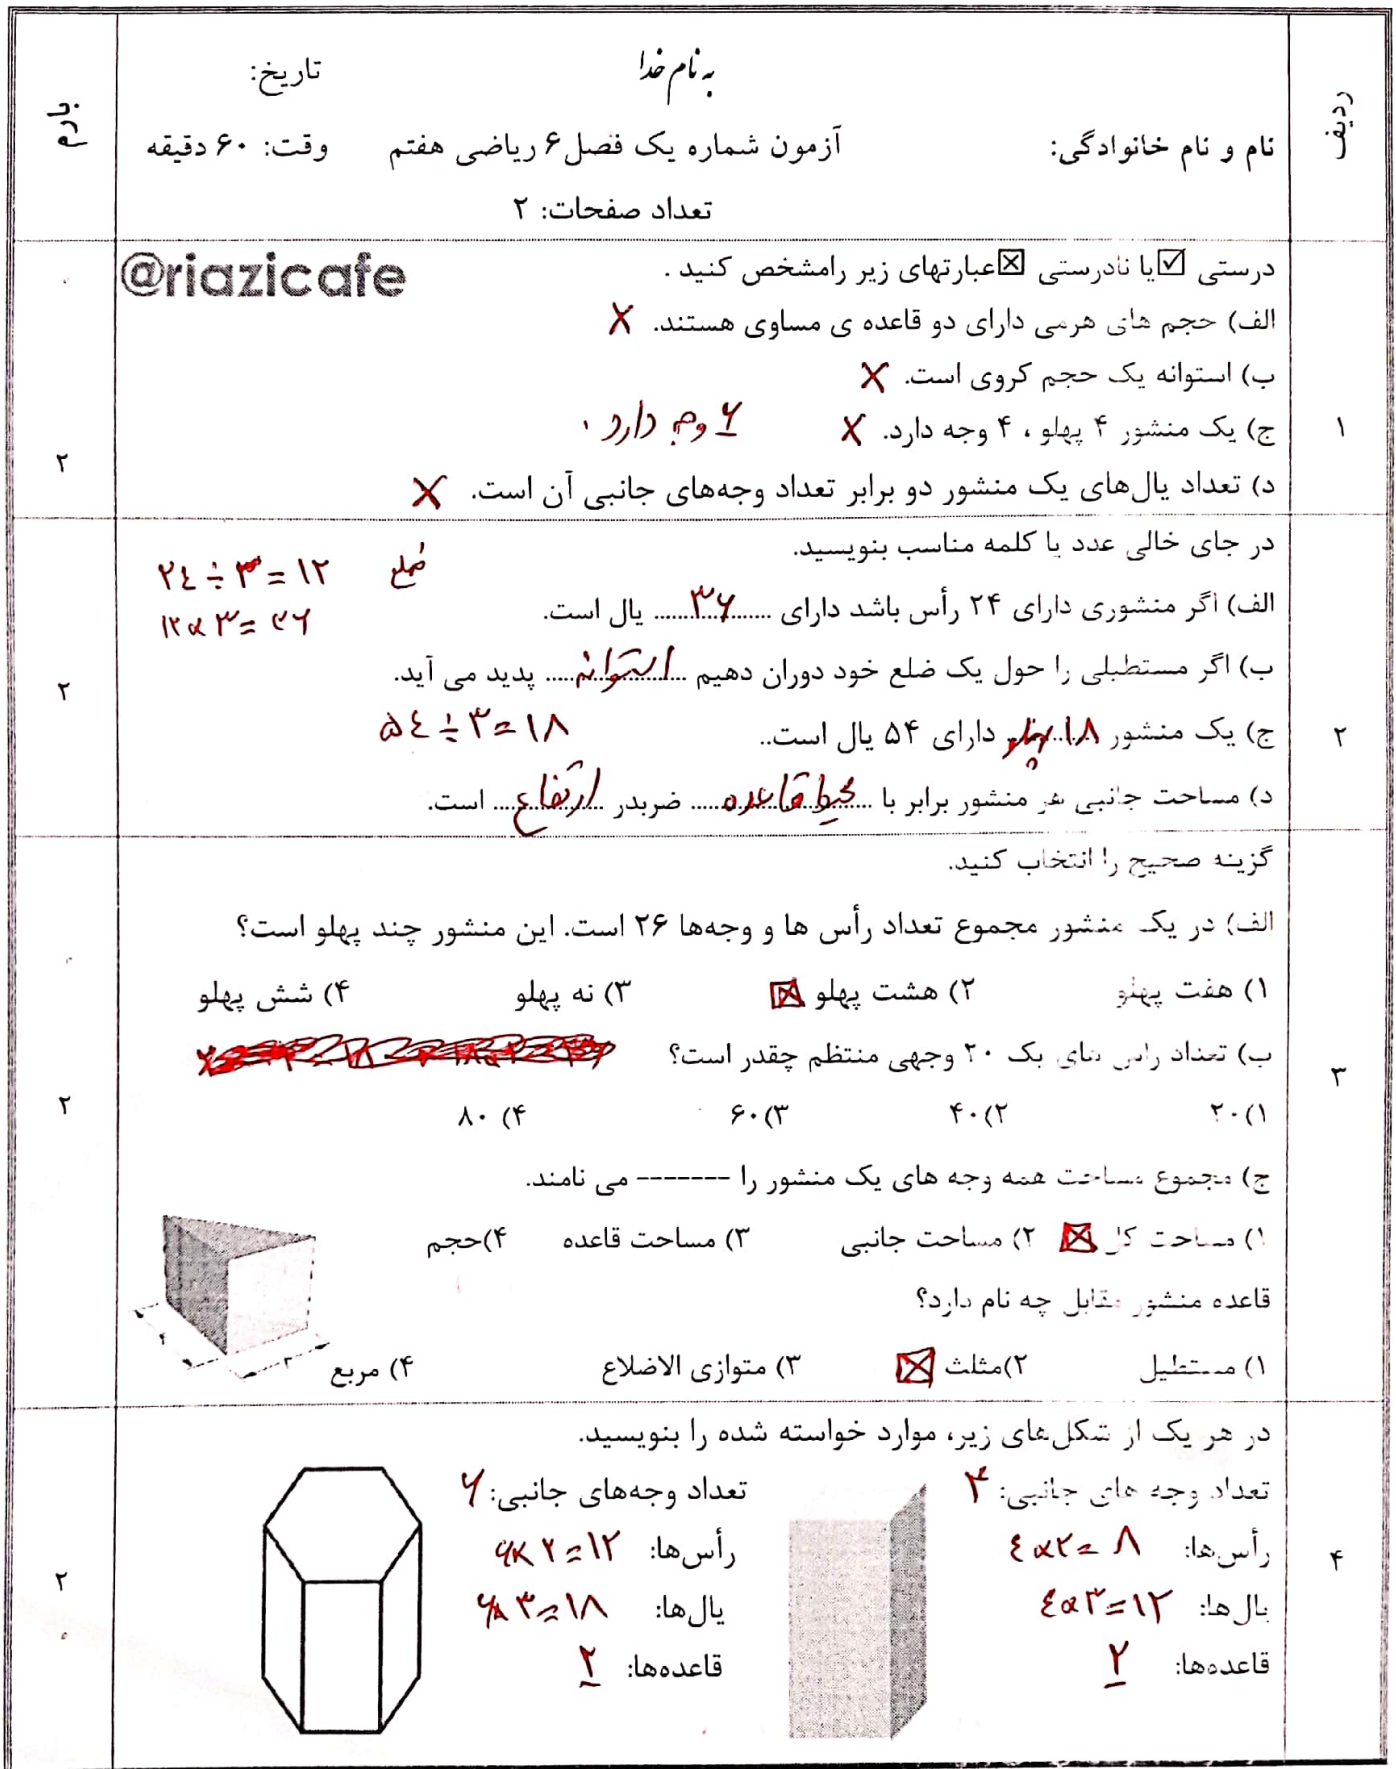 به نام خدا
تاریخ:
ردیف
نام و نام خانوادگی: آزمون شماره یک فصل ۶ ریاضی هفتم وقت: ۶۰ دقیقه
بارم
تعداد صفحات: ۲
@riazicafe
درستی ☑ یا نادرستی ☒ عبارتهای زیر رامشخص کنید .
الف) حجم های هرمی دارای دو قاعده ی مساوی هستند. X
ب) استوانه یک حجم کروی است. X
۱ ج) یک منشور ۴ پهلو ، ۴ وجه دارد. X ۶ وجه دارد .
د) تعداد یال‌های یک منشور دو برابر تعداد وجه‌های جانبی آن است. X ۲
در جای خالی عدد یا کلمه مناسب بنویسید.
ضلع ۲۴ ÷ ۳ = ۱۲
الف) اگر منشوری دارای ۲۴ رأس باشد دارای ....۳۶.... یال است.
۱۲ × ۳ = ۳۶
ب) اگر مستطیلی را حول یک ضلع خود دوران دهیم ....استوانه.... پدید می آید. ۲
۲ ج) یک منشور ۱۸ پهلو دارای ۵۴ یال است.. ۵۴ ÷ ۳ = ۱۸
د) مساحت جانبی هر منشور برابر با ....محیط قاعده.... ضربدر ....ارتفاع.... است.
گزینه صحیح را انتخاب کنید.
الف) در یک منشور مجموع تعداد رأس ها و وجه‌ها ۲۶ است. این منشور چند پهلو است؟
۱) هفت پهلو ۲) هشت پهلو ☒ ۳) نه پهلو ۴) شش پهلو
۳ ب) تعداد راس های یک ۲۰ وجهی منتظم چقدر است؟
۱) ۲۰ ۲) ۴۰ ۳) ۶۰ ۴) ۸۰ ۲
ج) مجموع مساحت همه وجه های یک منشور را ------- می نامند.
۱) مساحت کل ☒ ۲) مساحت جانبی ۳) مساحت قاعده ۴) حجم
قاعده منشور مقابل چه نام دارد؟
۱) مستطیل ۲) مثلث ☒ ۳) متوازی الاضلاع ۴) مربع
در هر یک از شکل‌های زیر، موارد خواسته شده را بنویسید.
تعداد وجه های جانبی: ۴ تعداد وجه‌های جانبی: ۶
۴ رأس‌ها: ۴×۲= ۸ رأس‌ها: ۶×۲=۱۲ ۲
یال ها: ۴×۳=۱۲ یال‌ها: ۶×۳=۱۸
قاعده‌ها: ۲ قاعده‌ها: ۲